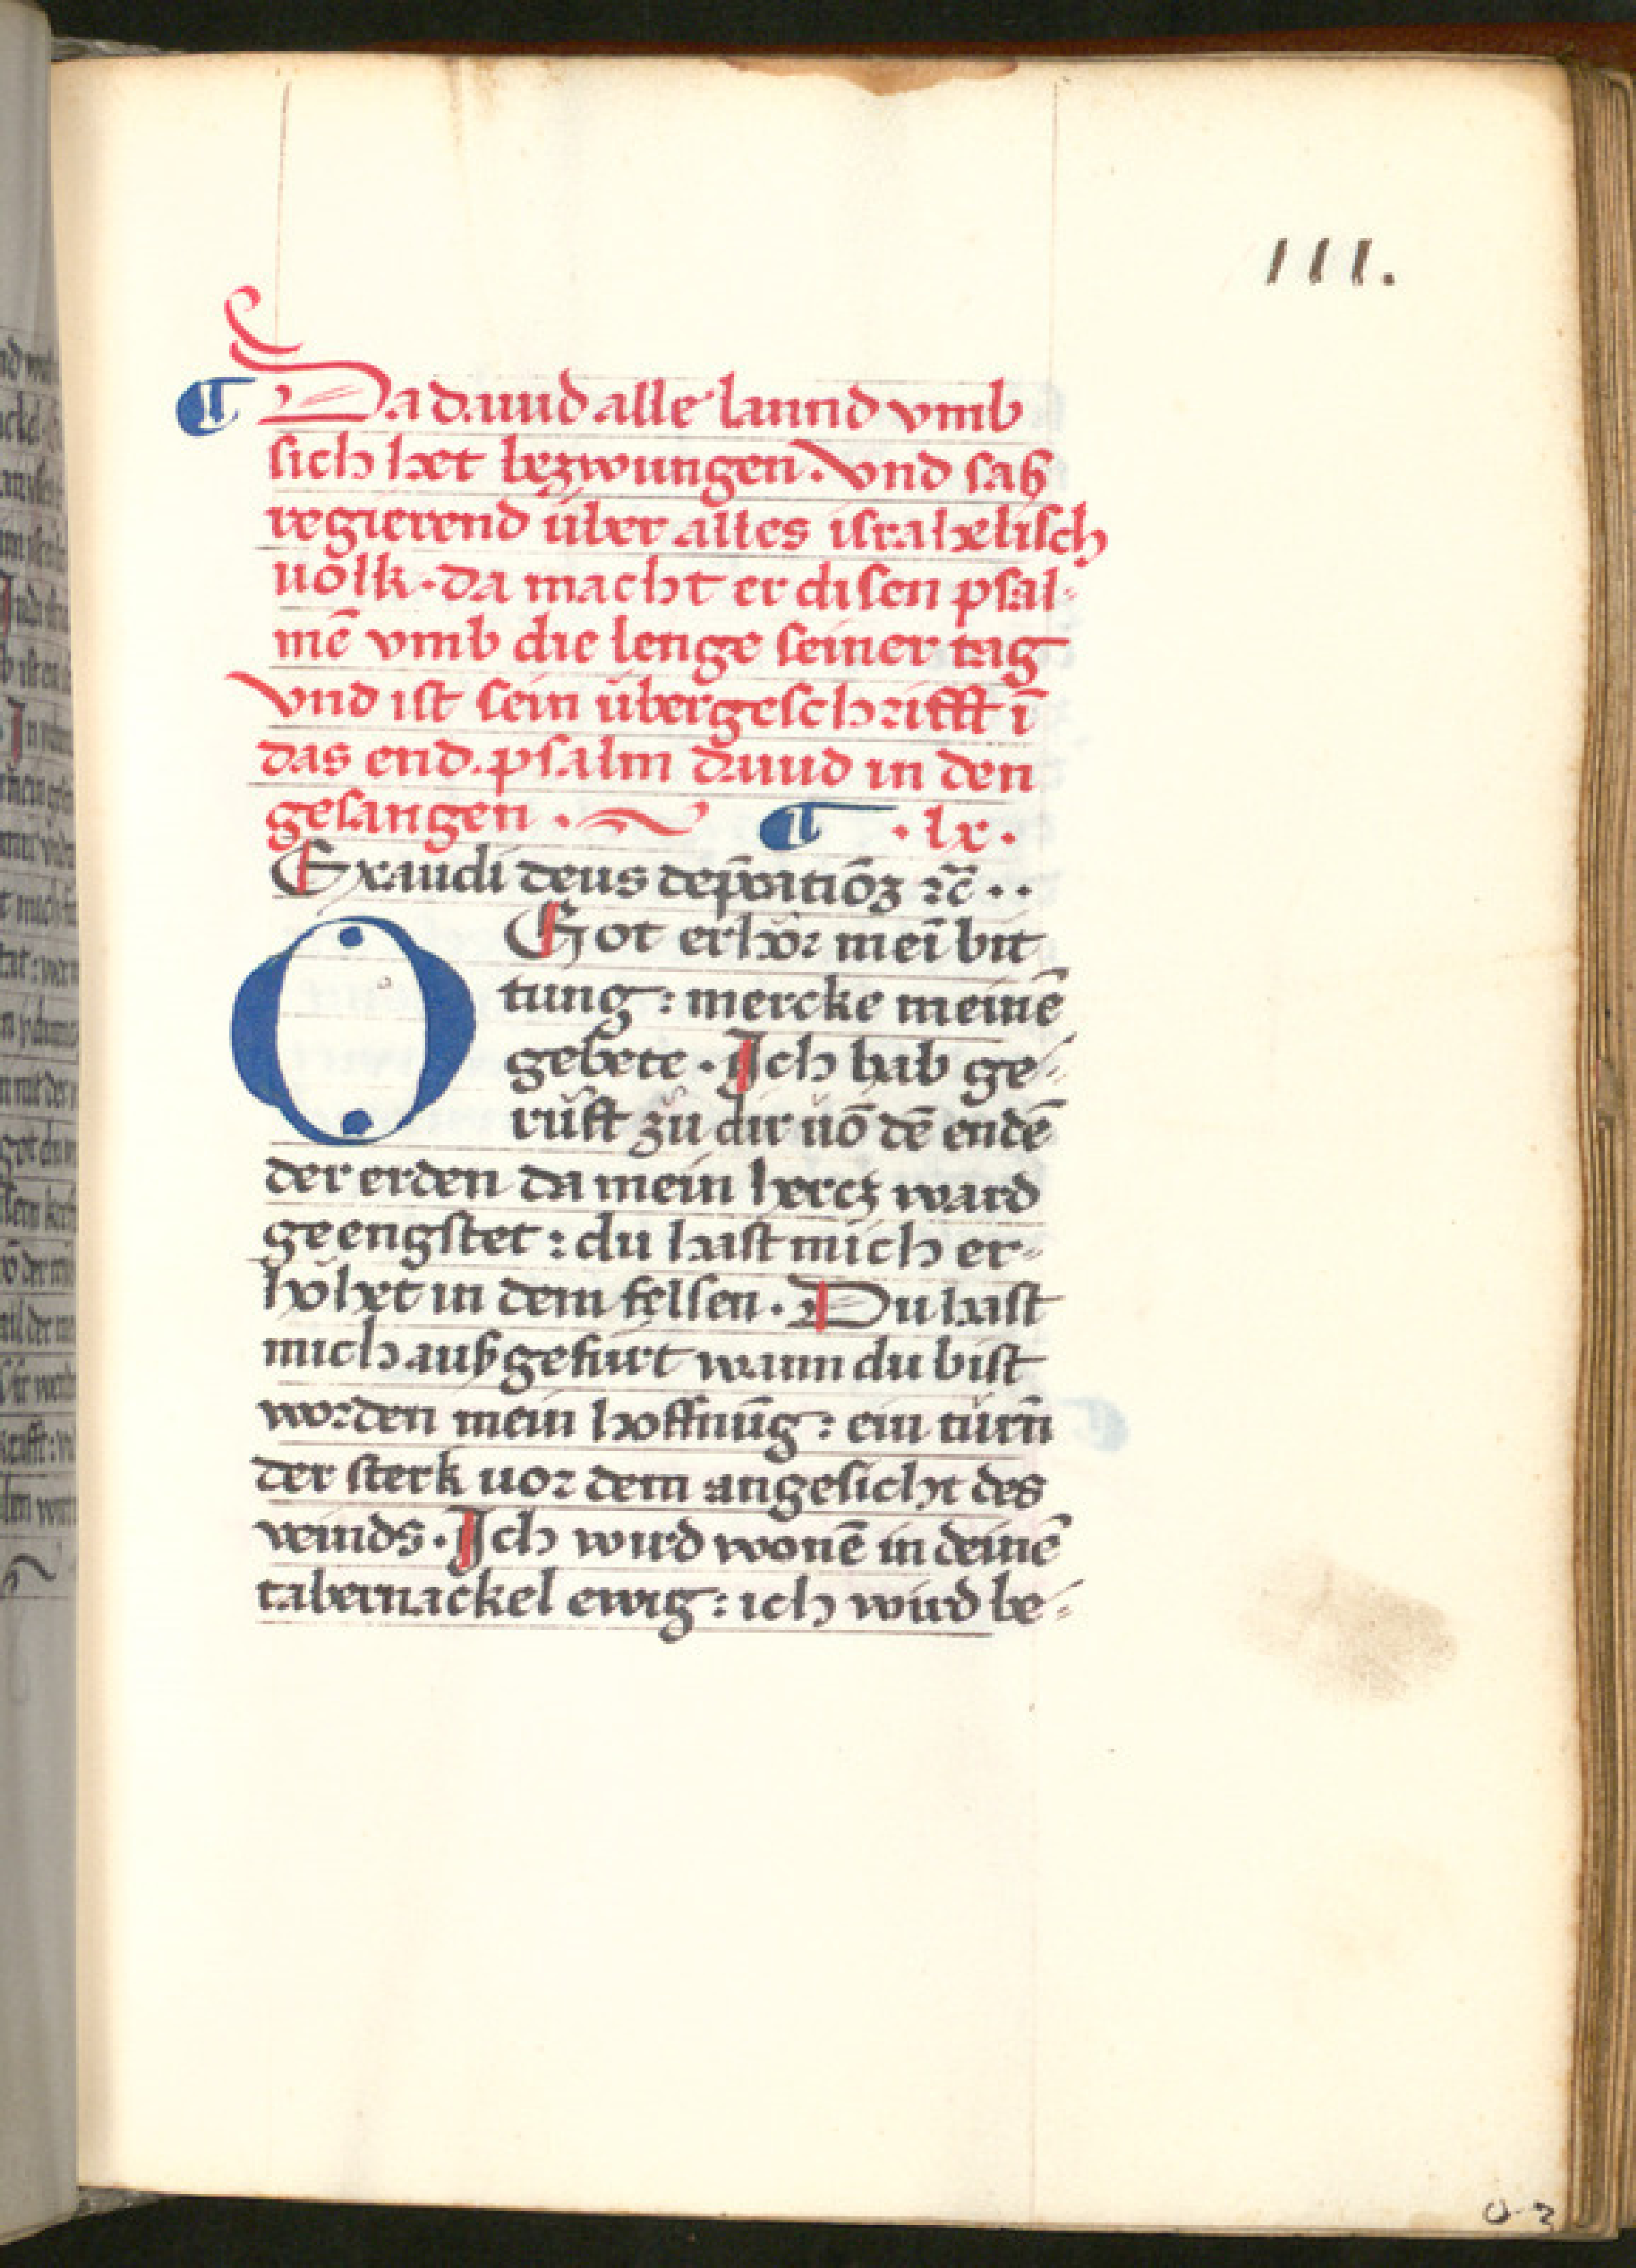 111.
¶ Da dauid alle lannd vmb
sich het bezwungen. vnd saß
regierend über alles israhelisch
uolk. da macht er disen psal-
mē vmb die lenge seiner tag
vnd ist sein übergeschrifft ī
das end. psalm dauid in den
gesangen. ¶ .lx.
Exaudi deus dep̄catiōꝫ ⁊c̄ ..
O Got erhör meī bit
tung : mercke meinē
gebete . Ich hab ge-
rüfft zů dir uō dē endē
der erden da mein hercz ward
geengstet : du hast mich er-
höhet in dem felsen . Du hast
mich außgefürt wann du bist
worden mein hoffnūg : ein turn̄
der sterk uor dem angesicht des
veinds . Ich wird wonē in deinē
tabernackel ewig : ich wird be-